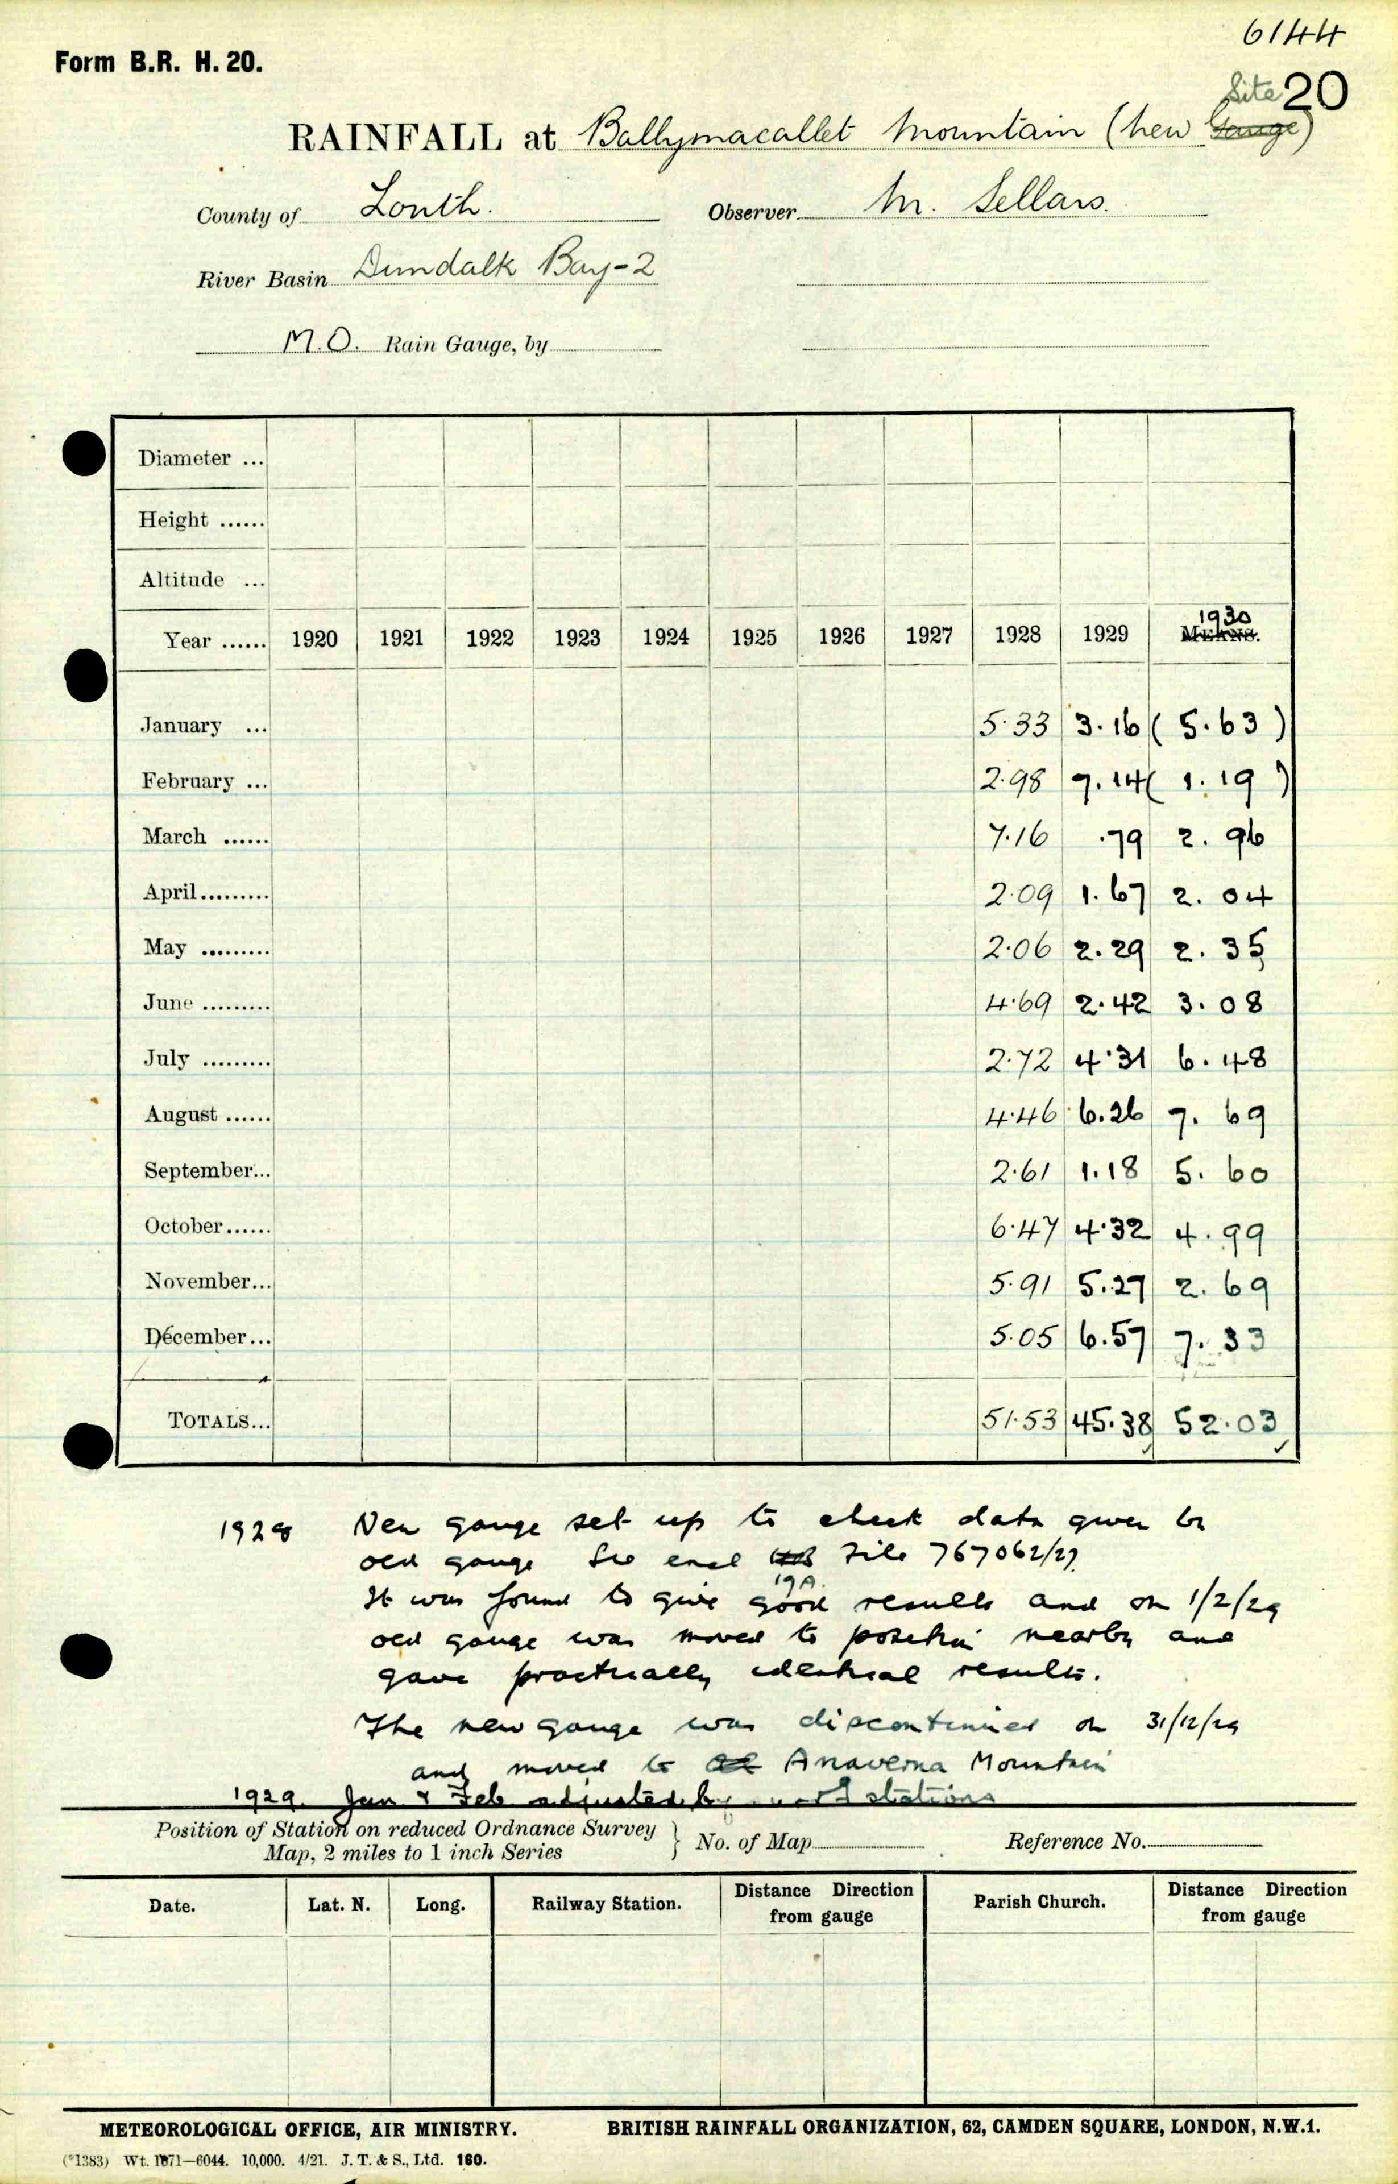 6144
Form B.R. H. 20.
Site 20
RAINFALL at Ballymacallet Mountain (new Gauge)
County of Louth. Observer M. Sellars.
River Basin Dundalk Bay-2
M.O. Rain Gauge, by
Diameter ...
Height ......
Altitude ...
1930
Year ...... 1920 1921 1922 1923 1924 1925 1926 1927 1928 1929 MEANS.
January ... 5.33 3.16 (5.63)
February ... 2.98 7.14 (1.19)
March ...... 7.16 .79 2.96
April......... 2.09 1.67 2.04
May ......... 2.06 2.29 2.35
June ......... 4.69 2.42 3.08
July ......... 2.72 4.31 6.48
August ...... 4.46 6.26 7.69
September... 2.61 1.18 5.60
October...... 6.47 4.32 4.99
November... 5.91 5.27 2.69
December... 5.05 6.57 7.33
TOTALS... 51.53 45.38 52.03
1928 New gauge set up to check data given by
old gauge See encl File 767062/27.
19A
It was found to give good results and on 1/2/29
old gauge was moved to position nearby and
gave practically identical results.
The new gauge was discontinued on 31/12/29
and moved to Anaverna Mountain
1929. Jan & Feb adjusted by stations
Position of Station on reduced Ordnance Survey
Map, 2 miles to 1 inch Series } No. of Map Reference No.
Date. Lat. N. Long. Railway Station. Distance Direction from gauge Parish Church. Distance Direction from gauge
METEOROLOGICAL OFFICE, AIR MINISTRY. BRITISH RAINFALL ORGANIZATION, 62, CAMDEN SQUARE, LONDON, N.W.1.
(*1383) Wt. 1871—6044. 10,000. 4/21. J. T. & S., Ltd. 160.